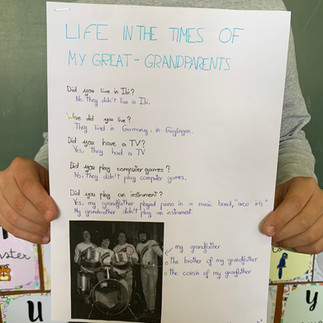 LIFE IN THE TIMES OF
MY GREAT-GRANDPARENTS
Did you live in Ibi?
No, they didn't live in Ibi.
did you live?
They lived in Germany, in
Did you have a TV?
Yes, they had a TV
Did you play computer games?
No, they didn't play computer games.
Did you play an instrument?
Yes, my grandfather played piano in a music band, "arco iris"
My grandmother didn't play an instrument.
my grandfather
the brother of my grandfather
the cousin of my grandfather